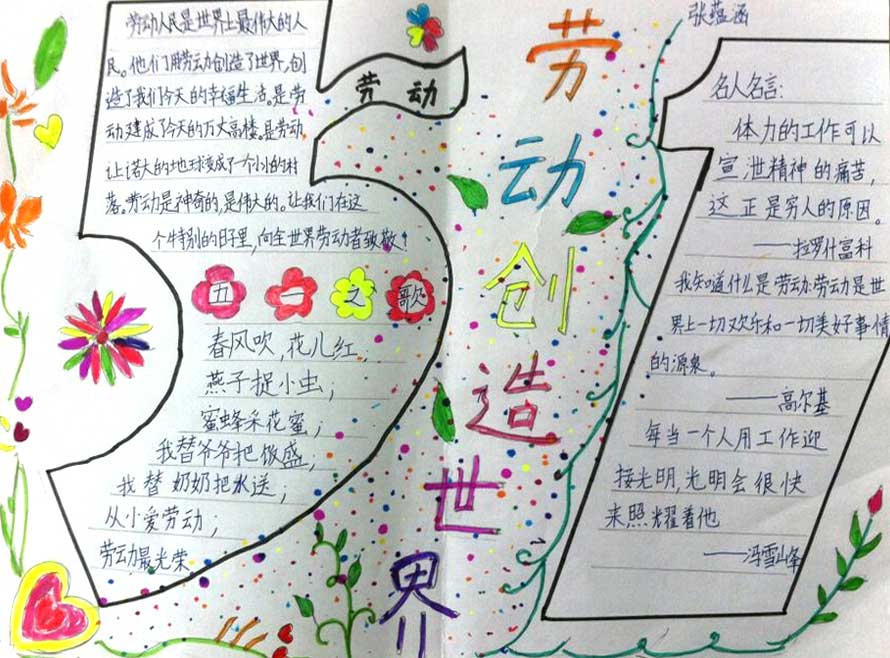 劳动人民是世界上最伟大的人
民。他们用劳动创造了世界,创
造了我们今天的幸福生活。是劳
动建成了今天的万丈高楼。是劳动
让诺大的地球变成了一个小小的村
落。劳动是神奇的,是伟大的。让我们在这
个特别的日子里,向全世界劳动者致敬!
劳动
五一之歌
春风吹,花儿红;
燕子捉小虫;
蜜蜂采花蜜;
我替爷爷把饭盛;
我替奶奶把水送;
从小爱劳动;
劳动最光荣
劳
动
创
造
世
界
张蕴涵
名人名言:
体力的工作可以
宣泄精神的痛苦,
这正是穷人的原因。
——拉罗什富科
我知道什么是劳动:劳动是世
界上一切欢乐和一切美好事情
的源泉。
——高尔基
每当一个人用工作迎
接光明,光明会很快
来照耀着他
——冯雪峰